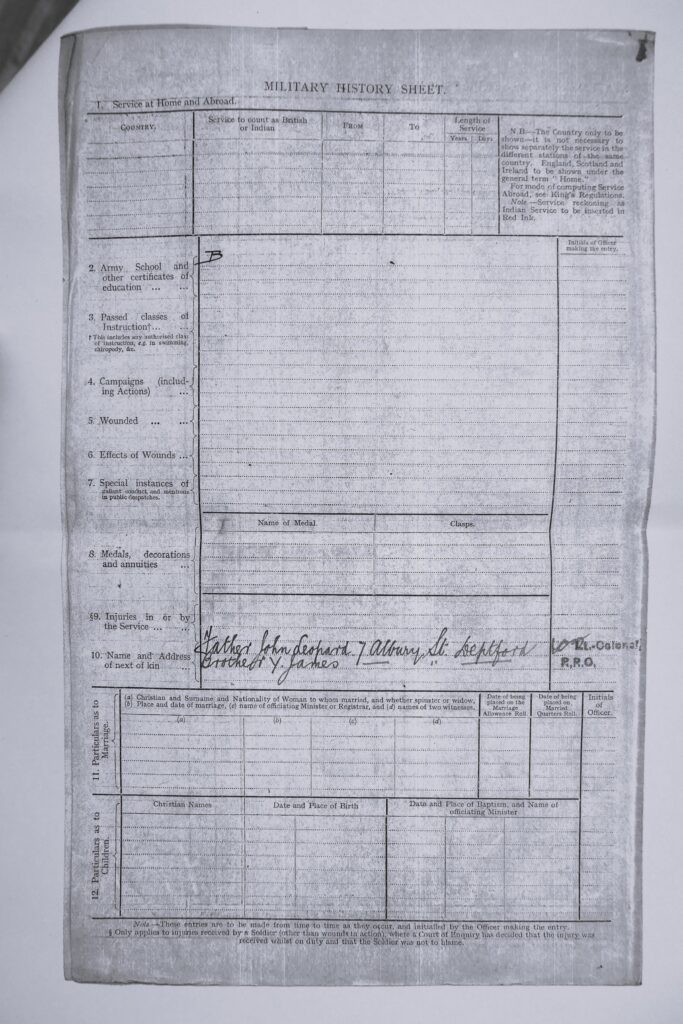 MILITARY HISTORY SHEET.
1. Service at Home and Abroad.
COUNTRY.
Service to count as British
or Indian
FROM
To
Length of
Service
Years.
Days.
N.B.—The Country only to be
shown—it is not necessary to
show separately the service in the
different stations of the same
country. England, Scotland and
Ireland to be shown under the
general term "Home."
For mode of computing Service
Abroad, see King's Regulations.
Note.—Service reckoning as
Indian Service to be inserted in
Red Ink.
Initials of Officer
making the entry.
B
2. Army School and
other certificates of
education ... ...
3. Passed classes of
Instruction†... ...
† This includes any authorised class
of instruction, e.g. in swimming,
chiropody, &c.
4. Campaigns (includ-
ing Actions) ...
5. Wounded ... ...
6. Effects of Wounds ...
7. Special instances of
gallant conduct and mentions
in public despatches.
Name of Medal.
Clasps.
8. Medals, decorations
and annuities ...
§9. Injuries in or by
the Service ... ...
10. Name and Address
of next of kin
Father John Leopard 7 Albury St. Deptford
Brother Y. James "
Lt.-Colonel,
R.R.O.
11. Particulars as to
Marriage.
(a) Christian and Surname and Nationality of Woman to whom married, and whether spinster or widow,
(b) Place and date of marriage, (c) name of officiating Minister or Registrar, and (d) names of two witnesses.
(a)
(b)
(c)
(d)
Date of being
placed on the
Marriage
Allowance Roll.
Date of being
placed on
Married
Quarters Roll.
Initials
of
Officer.
12. Particulars as to
Children.
Christian Names
Date and Place of Birth
Date and Place of Baptism, and Name of
officiating Minister
Note.—These entries are to be made from time to time as they occur, and initialled by the Officer making the entry.
§ Only applies to injuries received by a Soldier (other than wounds in action), where a Court of Enquiry has decided that the injury was
received whilst on duty and that the Soldier was not to blame.